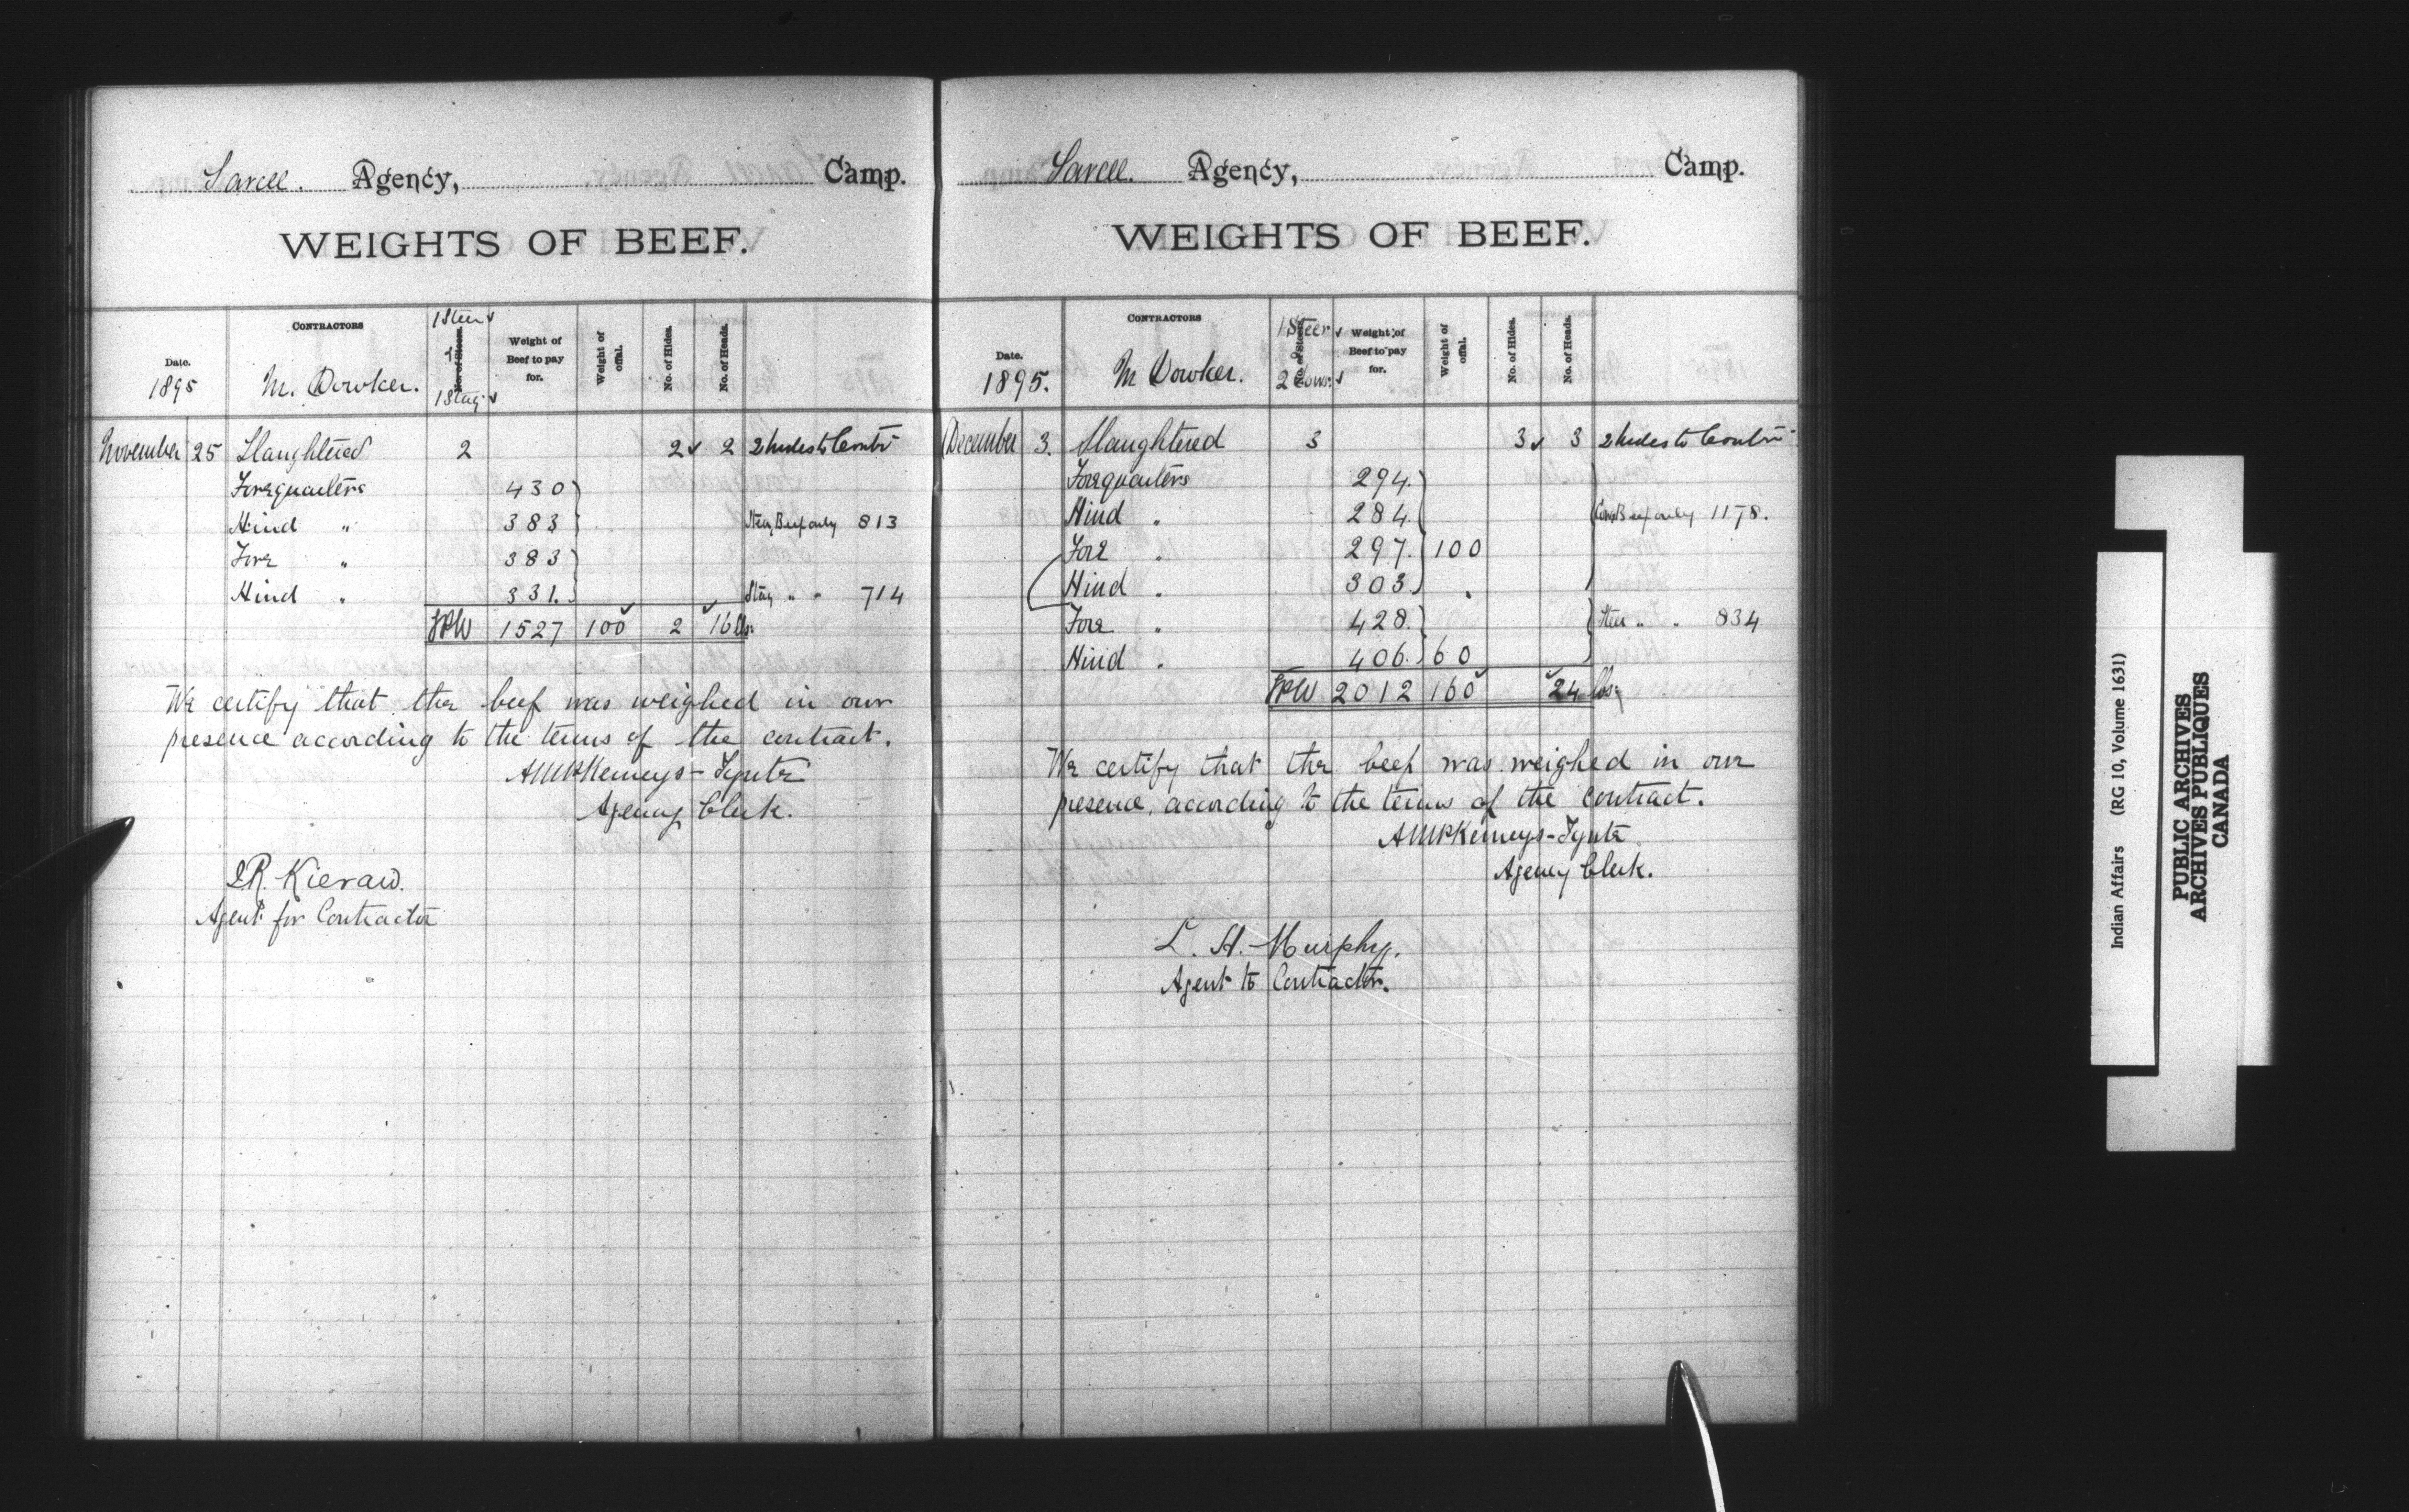 Sarcee. Agency, Camp.
WEIGHTS OF BEEF.
Date. 1895
CONTRACTORS M. Dowker.
1 Steer ✓ No. of Steers. 1 Stag ✓
Weight of Beef to pay for.
Weight of offal.
No. of Hides.
No. of Heads.
November 25 Slaughtered 2 2 ✓ 2 2 hides to Contr
Forequarters 430
Hind " 383 Steer Beef only 813
Fore " 383
Hind " 331. Stag " " 714
1527 100 ✓ 2 ✓ 16 lbs.
We certify that the beef was weighed in our
presence according to the terms of the contract.
AMcKKemeys-Tynte
Agency Clerk.
Agent for Contractor
Sarcee. Agency, Camp.
WEIGHTS OF BEEF.
Date. 1895.
CONTRACTORS M Dowker.
1 Steer ✓ No. of Steers. 2 Cows. ✓
Weight of Beef to pay for.
Weight of offal.
No. of Hides.
No. of Heads.
December 3. Slaughtered 3 3 ✓ 3 2 hides to Contr
Forequarters 294.
Hind " 284. Cow Beef only 1178.
Fore " 297. 100
Hind " 303.
Fore " 428. Steer " " 834
Hind " 406. 60
2012 160 ✓ ✓ 24 lbs.
We certify that the beef was weighed in our
presence, according to the terms of the contract.
AMcKKemeys-Tynte
Agency Clerk.
L. H. Murphy.
Agent to Contractor.
Indian Affairs (RG 10, Volume 1631)
PUBLIC ARCHIVES
ARCHIVES PUBLIQUES
CANADA